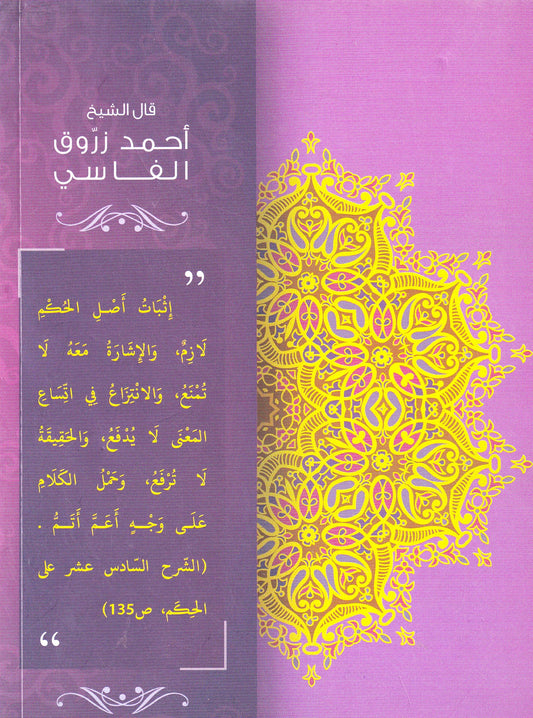 قال الشيخ
أحمد زرّوق
الفاسي
”
إِثْبَاتُ أَصْلِ الحُكْمِ
لَازِمٌ، وَالإِشَارَةُ مَعَهُ لَا
تُمْنَعُ، وَالانْتِزَاعُ فِي اتِّسَاعِ
المَعْنَى لَا يُدْفَعُ، وَالحَقِيقَةُ
لَا تُرْفَعُ، وَحَمْلُ الكَلَامِ
عَلَى وَجْهٍ أَعَمَّ أَتَمُّ .
(الشّرح السّادس عشر على
الحِكَم، ص135)
“